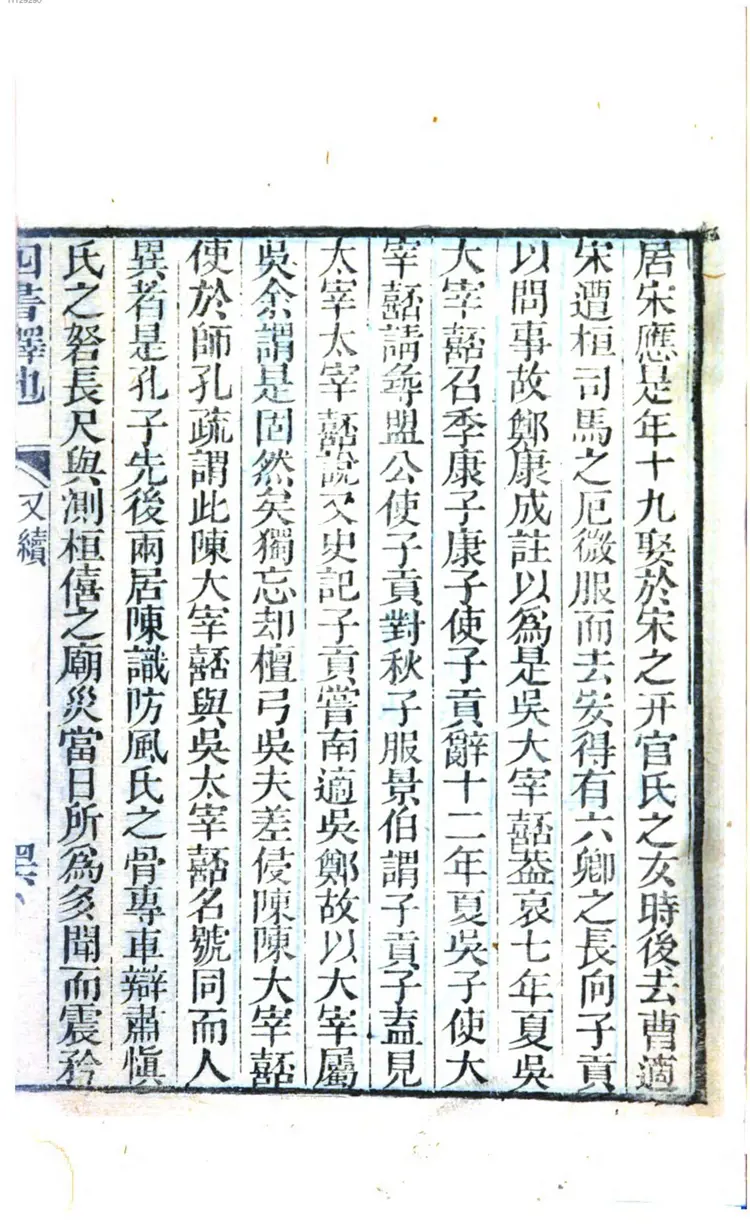 11129290
居宋應是年十九娶於宋之幵官氏之女時後去曹適
宋遭桓司馬之厄微服而去安得有六卿之長向子貢
以問事故鄭康成註以爲是吳大宰嚭葢哀七年夏吳
大宰嚭召季康子康子使子貢辭十二年夏吳子使大
宰嚭請尋盟公使子貢對秋子服景伯謂子貢子盍見
太宰太宰嚭說又史記子貢嘗南適吳鄭故以大宰屬
吳余謂是固然矣獨忘却檀弓吳夫差侵陳陳大宰嚭
使於師孔疏謂此陳大宰嚭與吳太宰嚭名號同而人
異者是孔子先後兩居陳識防風氏之骨專車辯肅愼
氏之砮長尺與測桓僖之廟災當日所爲多聞而震矜
四書釋地
又續